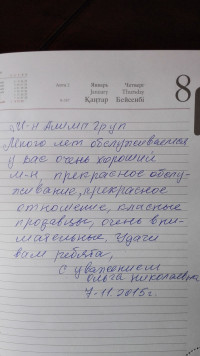 Январь Четверг
January Thursday
Қаңтар Бейсенбі
8
М-н Алма Груп
Много лет обслуживаемся
у вас очень хороший
м-н, прекрасное обслу-
живание, прекрасное
отношение, класные
продавцы, очень вни-
мательные. Удачи
вам ребята,
С уважением
Ольга Николаевна
7.11.2015г.